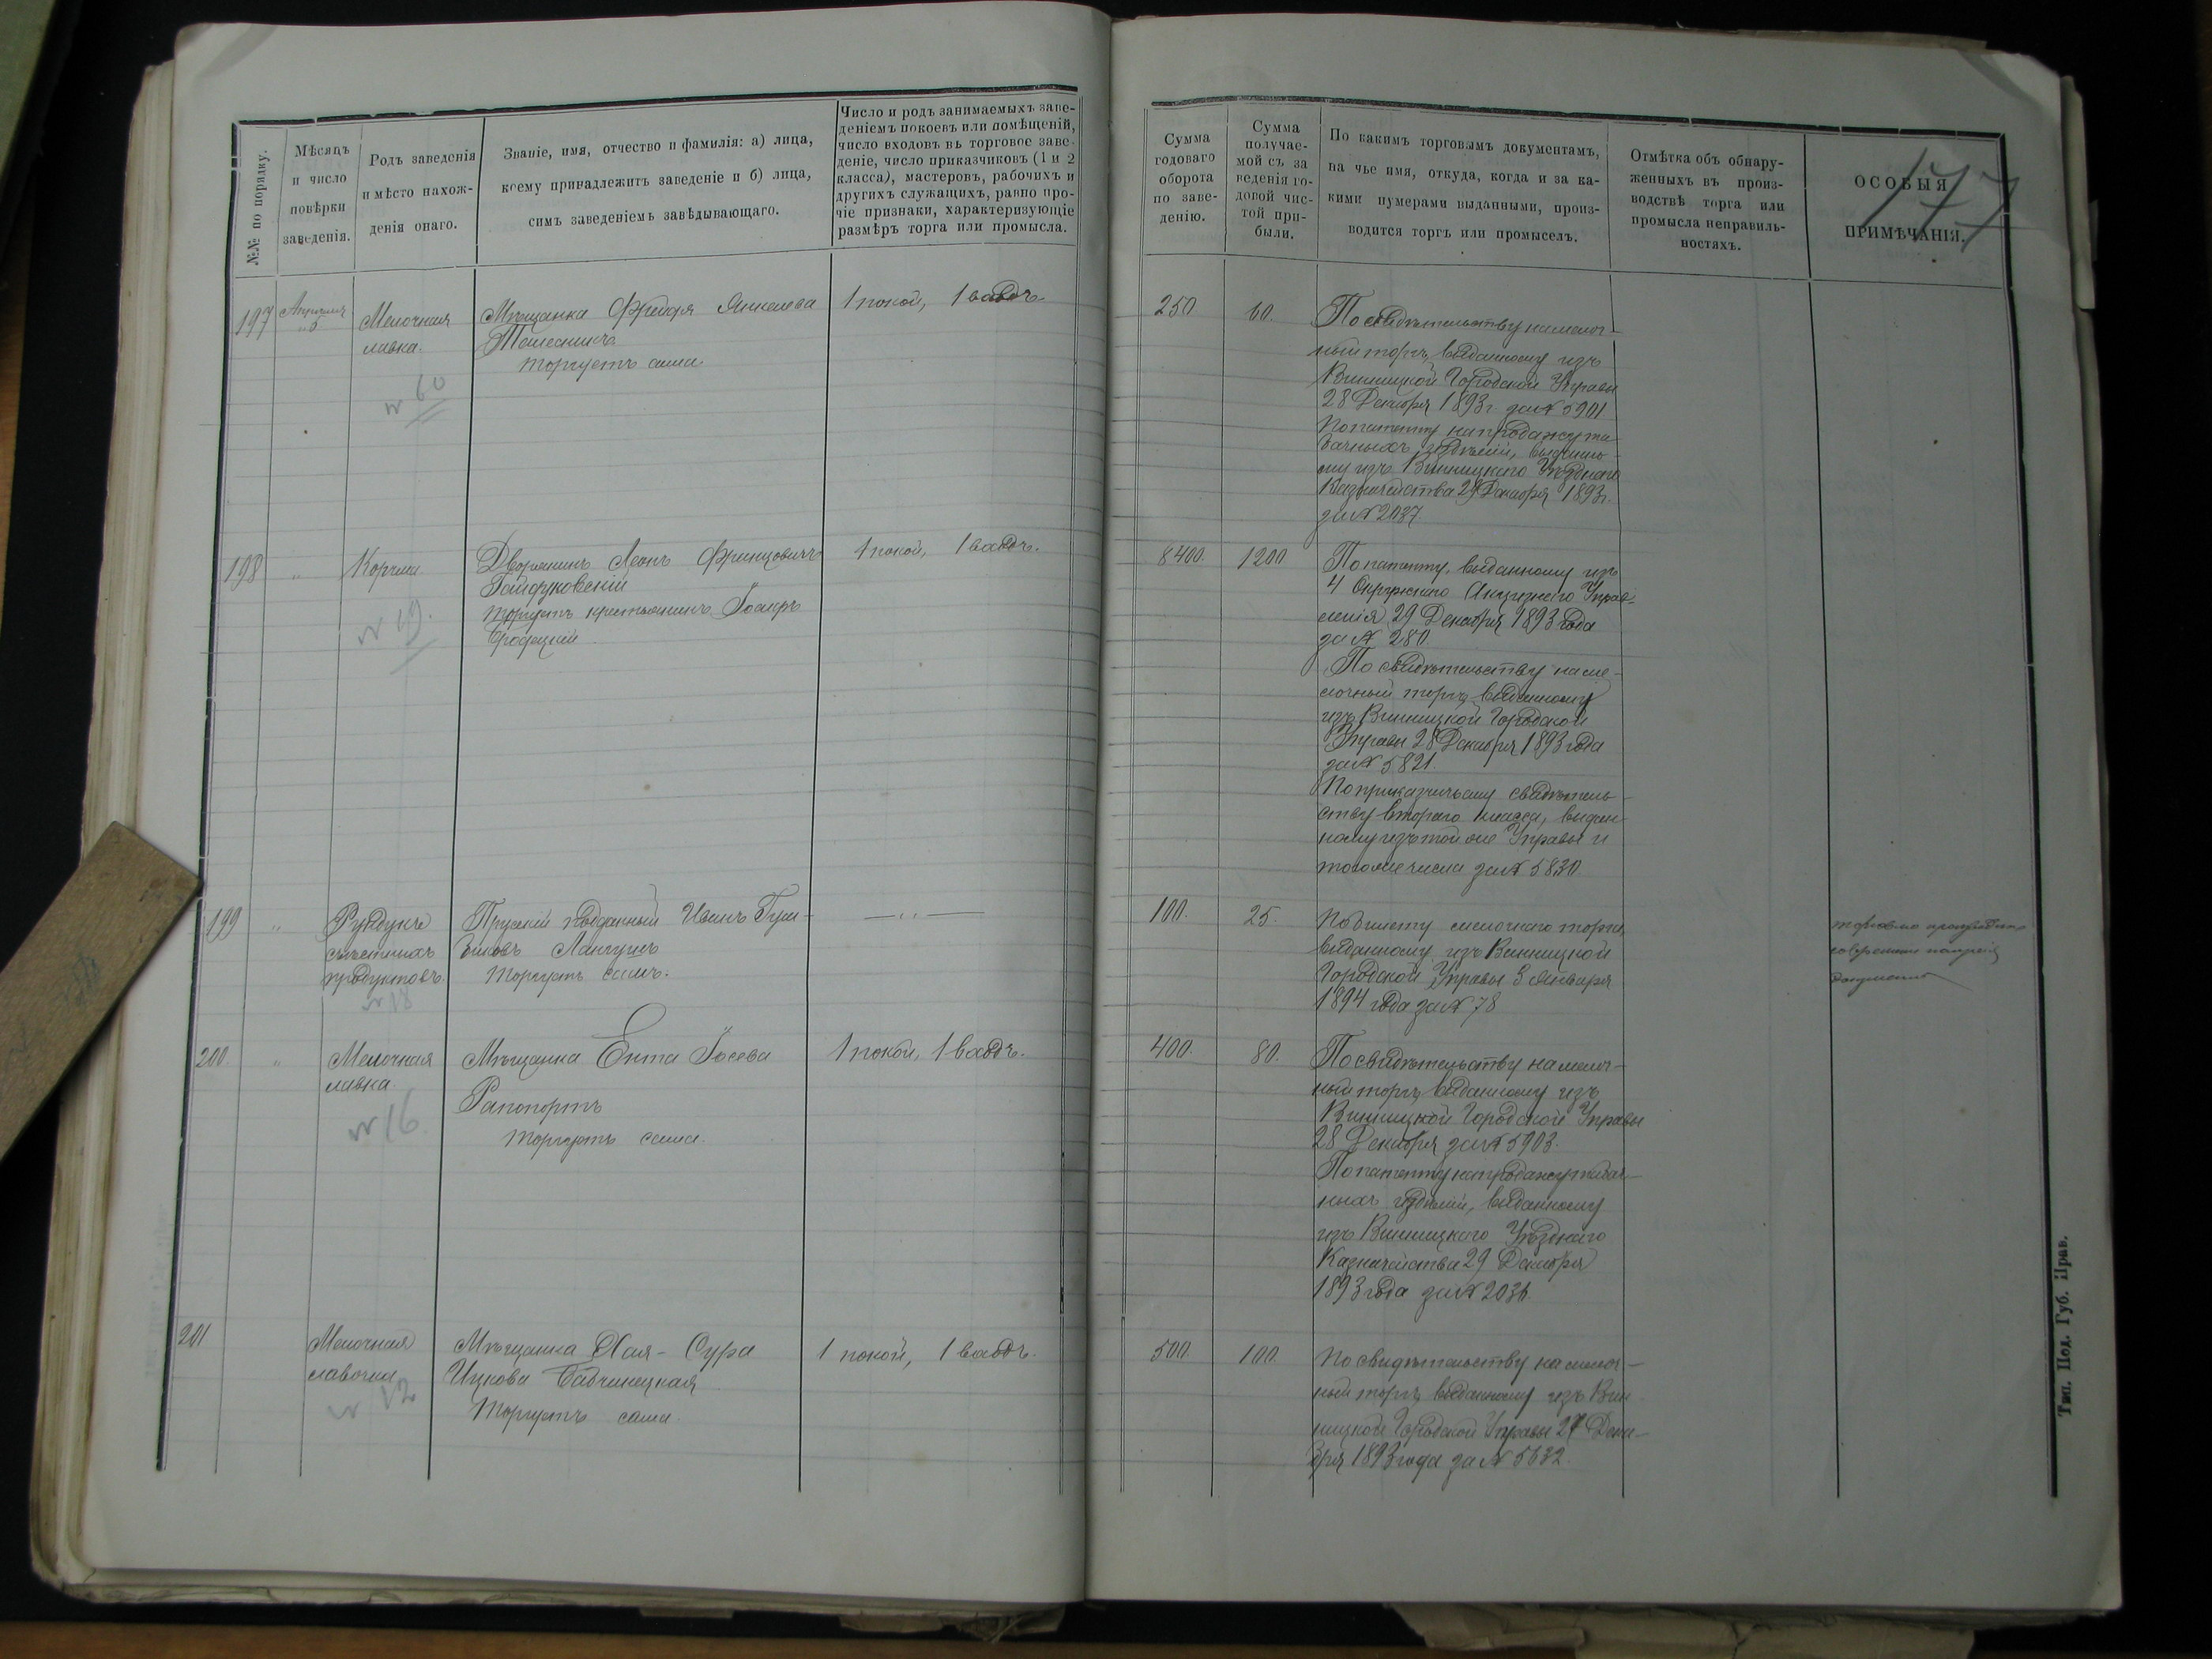 №№ по порядку.
Мѣсяцъ
и число
повѣрки
заведенія.
Родъ заведенія
и мѣсто нахож-
денія онаго.
Званіе, имя, отчество и фамилія: а) лица,
коему принадлежитъ заведеніе и б) лица,
симъ заведеніемъ завѣдывающаго.
Число и родъ занимаемыхъ заве-
деніемъ покоевъ или помѣщеній,
число входовъ въ торговое заве-
деніе, число приказчиковъ (1 и 2
класса), мастеровъ, рабочихъ и
другихъ служащихъ, равно про-
чіе признаки, характеризующіе
размѣръ торга или промысла.
Сумма
годоваго
оборота
по заве-
денію.
Сумма
получае-
мой съ за
веденія го-
довой чис-
той при-
были.
По какимъ торговымъ документамъ,
на чье имя, откуда, когда и за ка-
кими нумерами выданными, произ-
водится торгъ или промыселъ.
Отмѣтка объ обнару-
женныхъ въ произ-
водствѣ торга или
промысла неправиль-
ностяхъ.
ОСОБЫЯ
ПРИМѢЧАНІЯ.
177
197
Апрѣля
" 6
Мелочная
лавка.
№ 60
Мѣщанка Фрейда Янкелева
торгуетъ сама
1 покой, 1 входъ
250
60.
По свидѣтельству на мелоч-
ный торгъ, выданному изъ
Винницкой Городской Управы
28 Декабря 1893 г. за № 5901
По патенту на продажу та-
бачныхъ издѣлій, выданно-
му изъ Винницкаго Уѣзднаго
Казначейства 29 Декабря 1893 г.
за № 2037.
198
"
Корчма
№ 19.
Дворянинъ Леонъ Францовичъ
Гайдуковскій
торгуетъ крестьянинъ
1 покой, 1 входъ.
8400.
1200
По патенту, выданному изъ
4 Окружнаго Акцизнаго Управ-
ленія 29 Декабря 1893 года
за № 280
По свидѣтельству на ме-
лочный торгъ, выданному
изъ Винницкой Городской
Управы 28 Декабря 1893 года
за № 5821.
По приказчичьему свидѣтель-
ству втораго класса, выдан-
ному изъ той же Управы и
того же числа за № 5830
199
"
Рундукъ
съѣстныхъ
продуктовъ.
№ 18
Прускій подданный Иванъ
торгуетъ самъ.
— " —
100.
25.
По билету мелочнаго торга
выданному изъ Винницкой
Городской Управы 3 Января
1894 года за № 78
200
"
Мелочная
лавка.
№ 16
Мѣщанка Ента Іосева
Рапопортъ
торгуетъ сама.
1 покой, 1 входъ.
400.
80.
По свидѣтельству на мелоч-
ный торгъ, выданному изъ
Винницкой Городской Управы
28 Декабря за № 5903.
По патенту на продажу табач-
ныхъ издѣлій, выданному
изъ Винницкаго Уѣзднаго
Казначейства 29 Декабря
1893 года за № 2036.
201
Мелочная
лавочка
№ 12
Мѣщанка Хая-Сура
Ицкова Бабчинецкая
торгуетъ сама.
1 покой, 1 входъ.
500.
100
По свидѣтельству на мелоч-
ный торгъ, выданному изъ Вин-
ницкой Городской Управы 27 Дека-
бря 1893 года за № 5632.
Тип. Под. Губ. Прав.